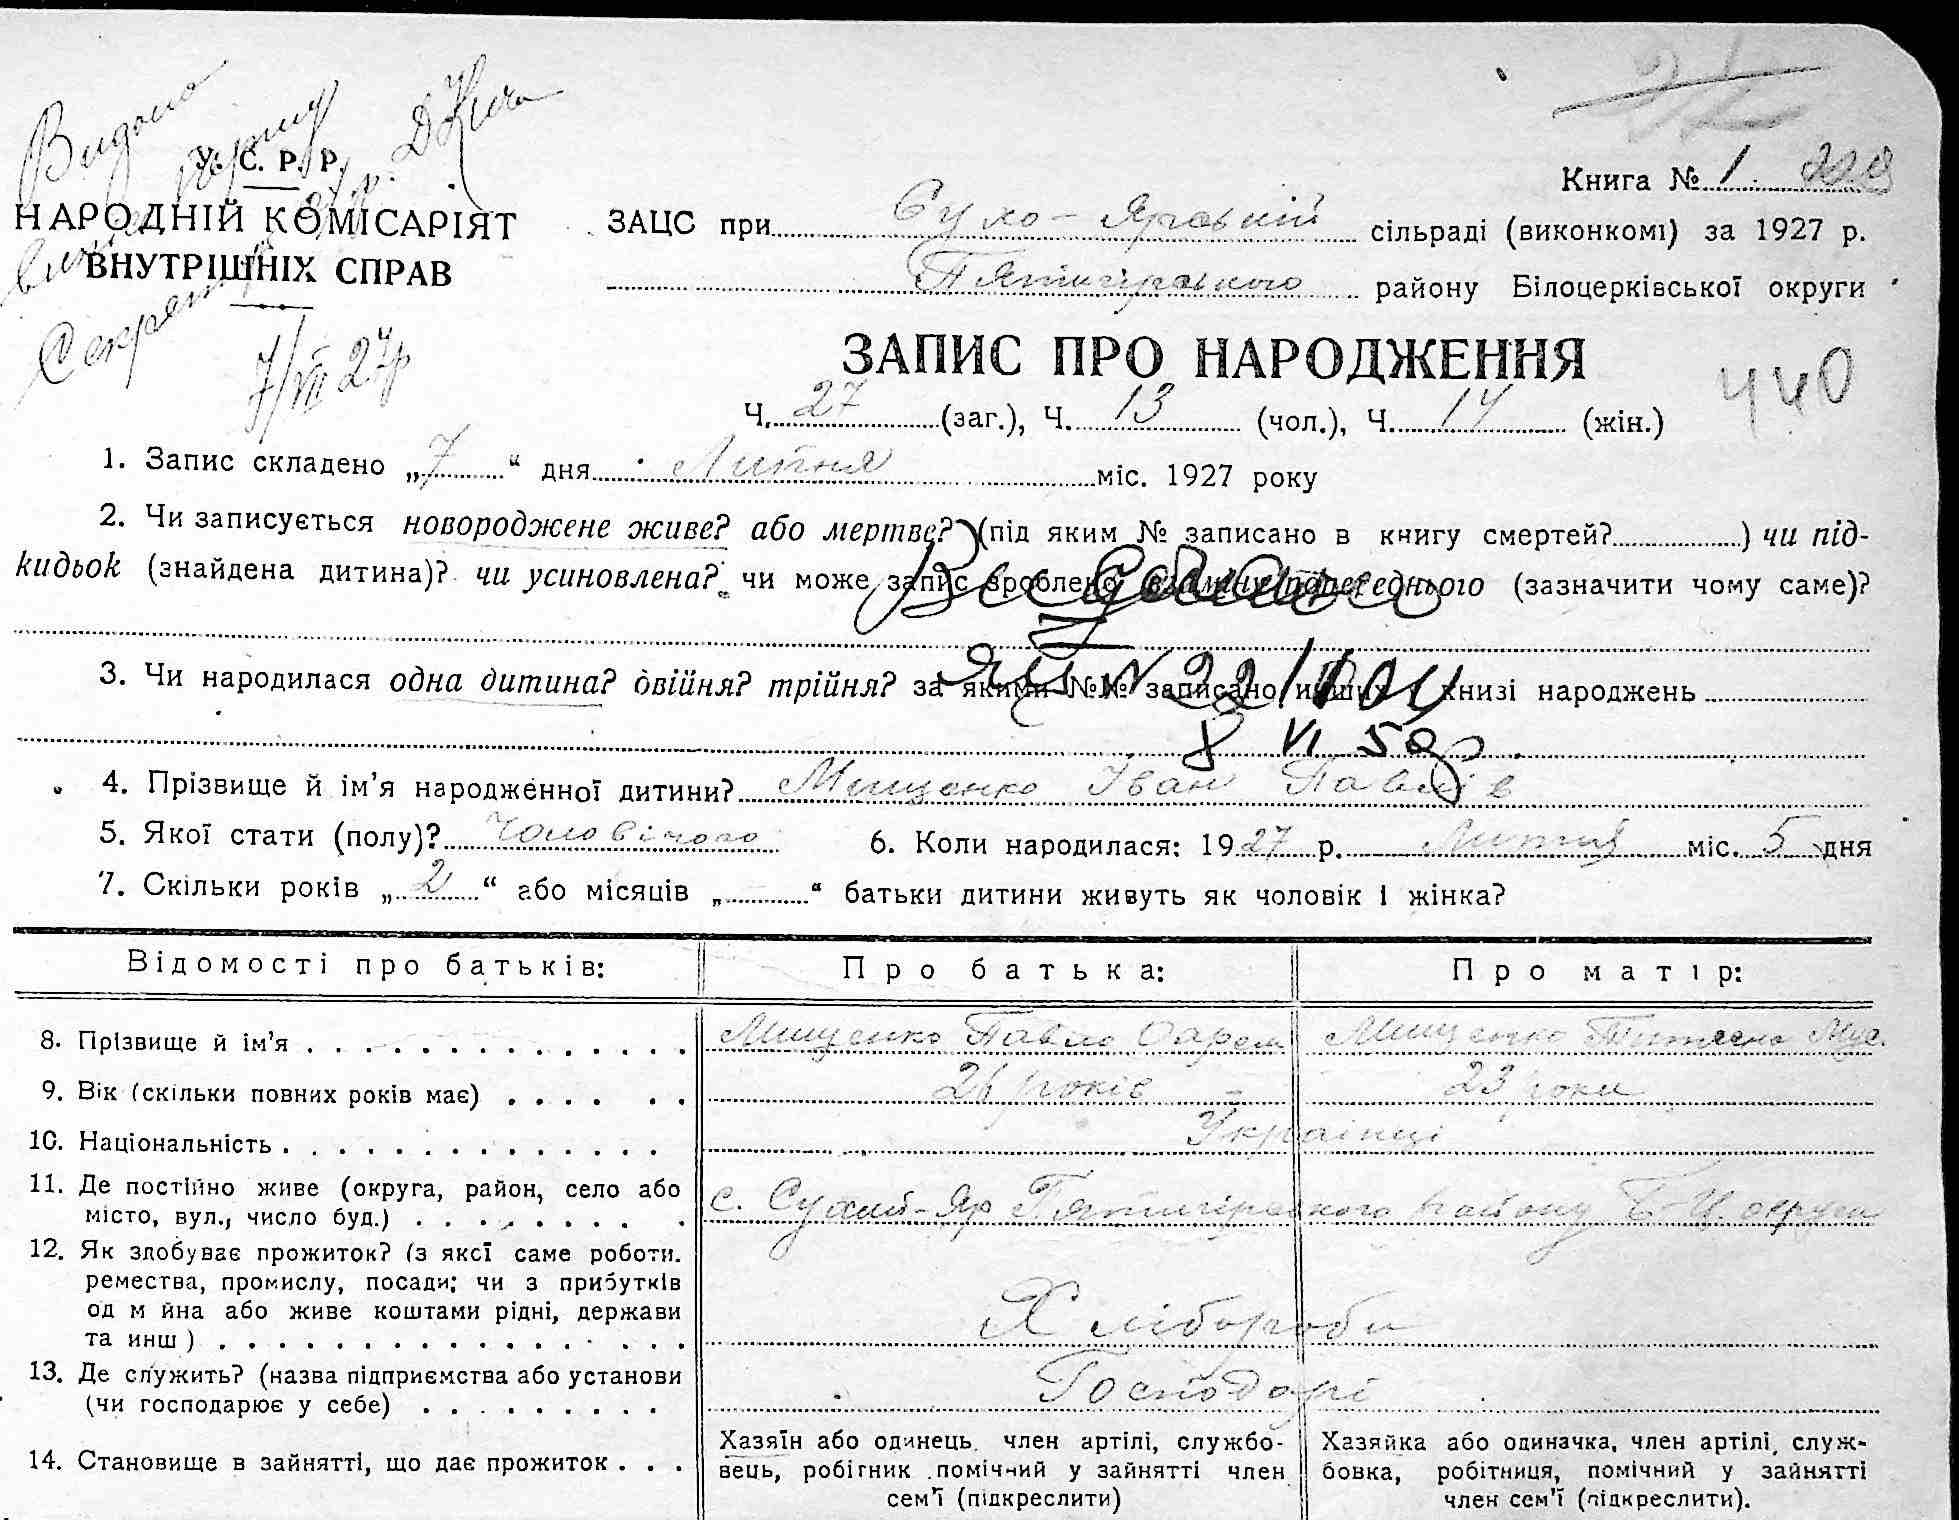 Видано
У. С. Р. Р.
НАРОДНІЙ КОМІСАРІЯТ
ВНУТРІШНІХ СПРАВ
Секретар
7/VII 27р
Книга № 1
ЗАЦС при Сухо-Ярській сільраді (виконкомі) за 1927 р.
Пятигірського району Білоцерківської округи
ЗАПИС ПРО НАРОДЖЕННЯ
440
Ч. 27 (заг.), Ч. 13 (чол.), Ч. 14 (жін.)
1. Запис складено „7“ дня Липня міс. 1927 року
2. Чи записується новороджене живе? або мертве? (під яким № записано в книгу смертей?) чи під-
кидьок (знайдена дитина)? чи усиновлена? чи може запис зроблено взамін попереднього (зазначити чому саме)?
3. Чи народилася одна дитина? двійня? трійня? за якими №№ записано инших у книзі народжень
8 VI 50р.
4. Прізвище й ім’я народженної дитини? Мищенко Іван Павлів
5. Якої стати (полу)? Чоловічого 6. Коли народилася: 1927 р. Липня міс. 5 дня
7. Скільки років „2“ або місяців „“ батьки дитини живуть як чоловік і жінка?
Відомості про батьків: Про батька: Про матір:
8. Прізвище й ім’я Мищенко Павло Мищенко
9. Вік (скільки повних років має) 26 років 23 роки
10. Національність Українці
11. Де постійно живе (округа, район, село або
місто, вул., число буд.) с. Сухий-Яр Пятигірського району Б-Ц. округи
12. Як здобуває прожиток? (з якої саме роботи.
ремества, промислу, посади; чи з прибутків
од м йна або живе коштами рідні, держави
та инш) Хлібороби
13. Де служить? (назва підприємства або установи
(чи господарює у себе) Господарі
14. Становище в зайнятті, що дає прожиток
Хазяїн або одинець, член артілі, службо-
вець, робітник помічний у зайнятті член
сем’ї (підкреслити)
Хазяйка або одиначка, член артілі, служ-
бовка, робітниця, помічний у зайнятті
член сем’ї (підкреслити).